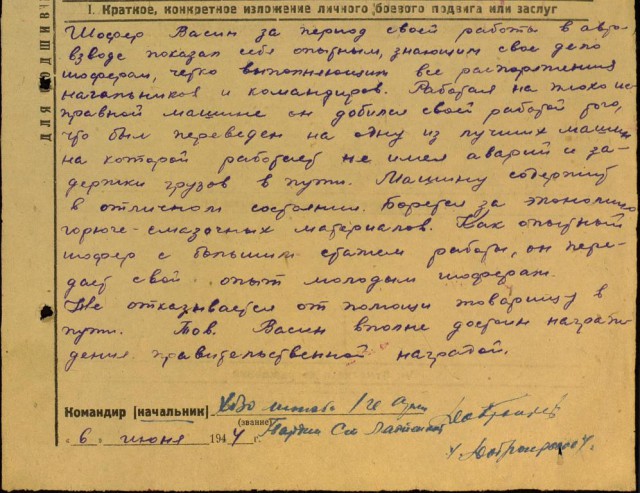 ДЛЯ ПОДШИВ
I. Краткое, конкретное изложение личного боевого подвига или заслуг
Шофер Васин за период своей работы в авто-
взводе показал себя опытным, знающим свое дело
шофером, четко выполняющим все распоряжения
начальников и командиров. Работая на плохо ис-
правной машине он добился своей работой того,
что был переведен на одну из лучших машин
на которой работает не имея аварий и за-
держки грузов в пути. Машину содержит
в отличном состоянии. Борется за экономию
горюче-смазочных материалов. Как опытный
шофер с большим стажем работы, он пере-
дает свой опыт молодым шоферам.
Не отказывается от помощи товарищу в
пути. Тов. Васин вполне достоин награж-
дения правительственной наградой.
Командир [начальник] штаба
(звание) Гвардии
"6" июня 1944 г.